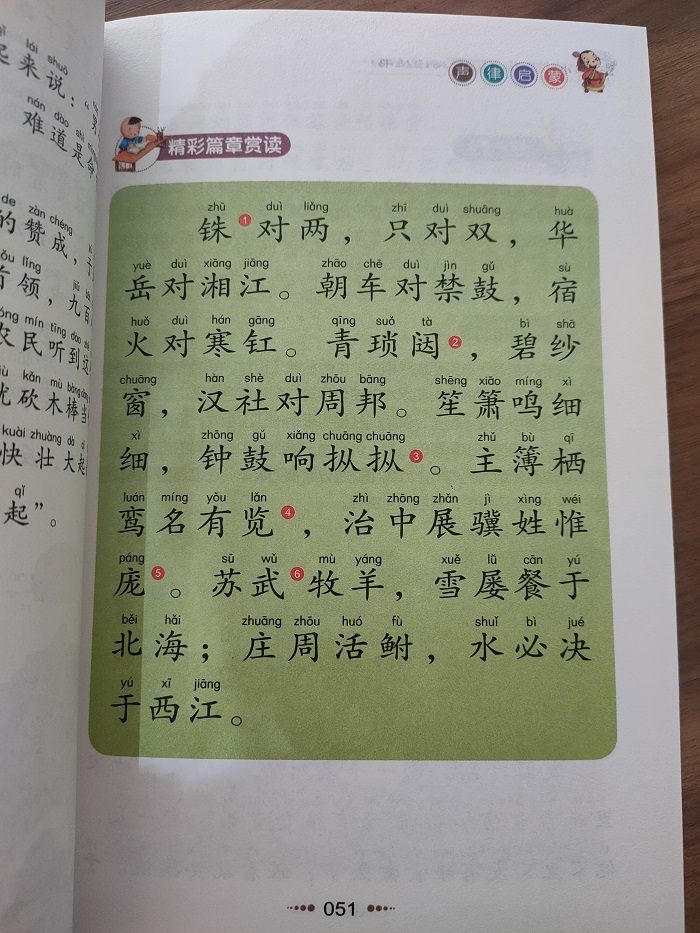 起来说：“男
难道是命
的赞成，于
首领，九百
农民听到这
光砍木棒当
快壮大起
起”。
声律启蒙
精彩篇章赏读
zhū duì liǎng zhī duì shuāng huà
铢1对两，只对双，华
yuè duì xiāng jiāng zhāo chē duì jìn gǔ sù
岳对湘江。朝车对禁鼓，宿
huǒ duì hán gāng qīng suǒ tà bì shā
火对寒缸。青琐闼2，碧纱
chuāng hàn shè duì zhōu bāng shēng xiāo míng xì
窗，汉社对周邦。笙箫鸣细
xì zhōng gǔ xiǎng chuāng chuāng zhǔ bù qī
细，钟鼓响摐摐3。主簿栖
luán míng yǒu lǎn zhì zhōng zhǎn jì xìng wéi
鸾名有览4，治中展骥姓惟
páng sū wǔ mù yáng xuě lǚ cān yú
庞5。苏武6牧羊，雪屡餐于
běi hǎi zhuāng zhōu huó fù shuǐ bì jué
北海；庄周活鲋，水必决
yú xī jiāng
于西江。
051